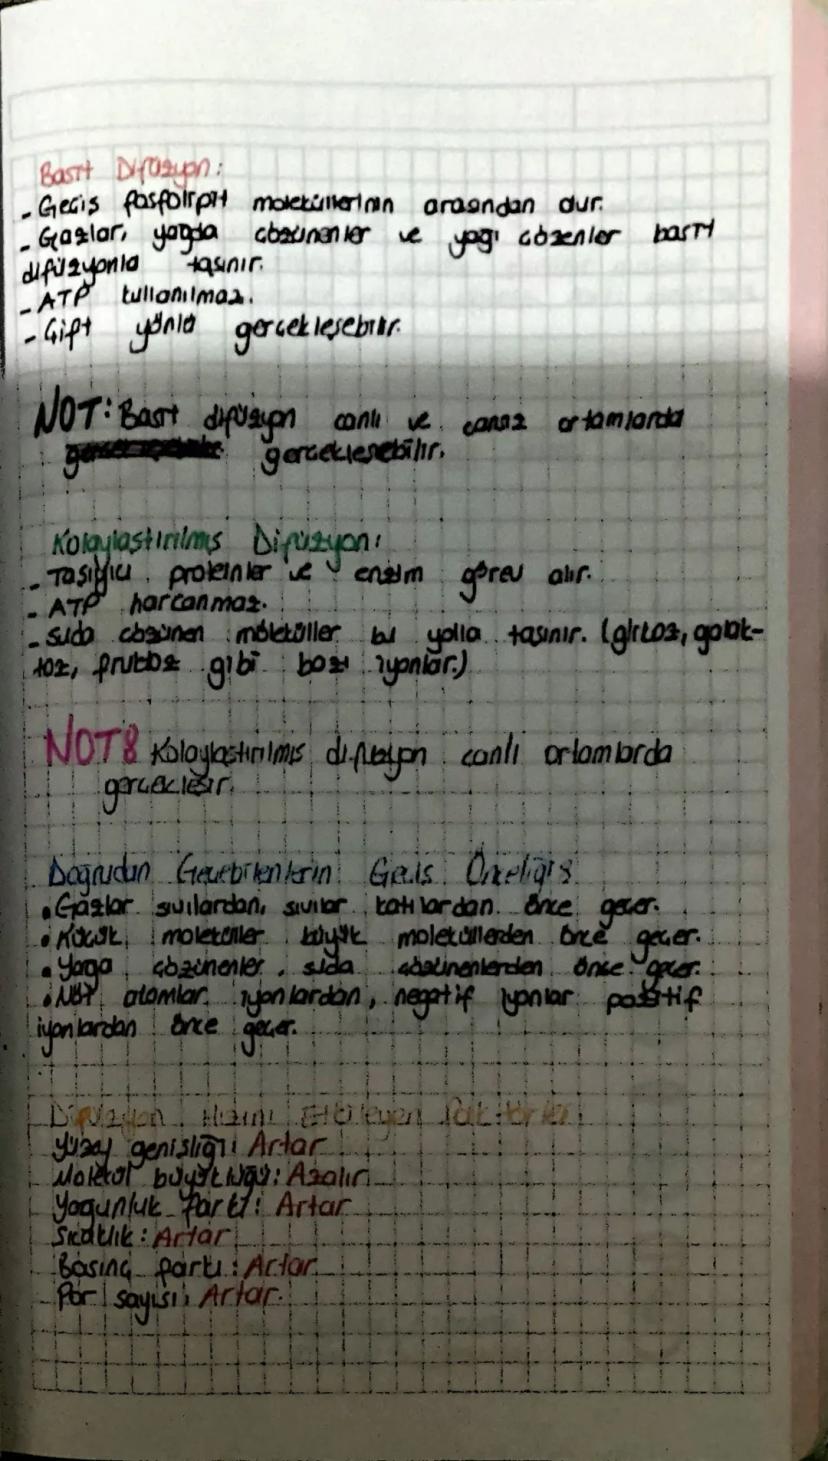 Basit Difüzyon:
- Geçiş fosfolipit moleküllerinin arasından olur.
- Gazlar, yağda çözünenler ve yağı çözenler basit
difüzyonla taşınır.
- ATP kullanılmaz.
- Çift yönlü gerçekleşebilir.
NOT: Basit difüzyon canlı ve cansız ortamlarda
gerçekleşebilir.
Kolaylaştırılmış Difüzyon:
- Taşıyıcı proteinler ve enzim görev alır.
- ATP harcanmaz.
- Suda çözünen moleküller bu yolla taşınır. (glikoz, galak-
toz, fruktoz gibi bazı iyonlar.)
NOT: Kolaylaştırılmış difüzyon canlı ortamlarda
gerçekleşir.
Doğrudan Geçebilenlerin Geçiş Özelliği:
• Gazlar sıvılardan, sıvılar katılardan önce geçer.
• Küçük moleküller büyük moleküllerden önce geçer.
• Yağda çözünenler suda çözünenlerden önce geçer.
• Nötr atomlar iyonlardan, negatif iyonlar pozitif
iyonlardan önce geçer.
Difüzyon Hızını Etkileyen Faktörler:
Yüzey genişliği: Artar
Molekül büyüklüğü: Azalır
Yoğunluk farkı: Artar
Sıcaklık: Artar
Basınç farkı: Artar
Por sayısı: Artar.